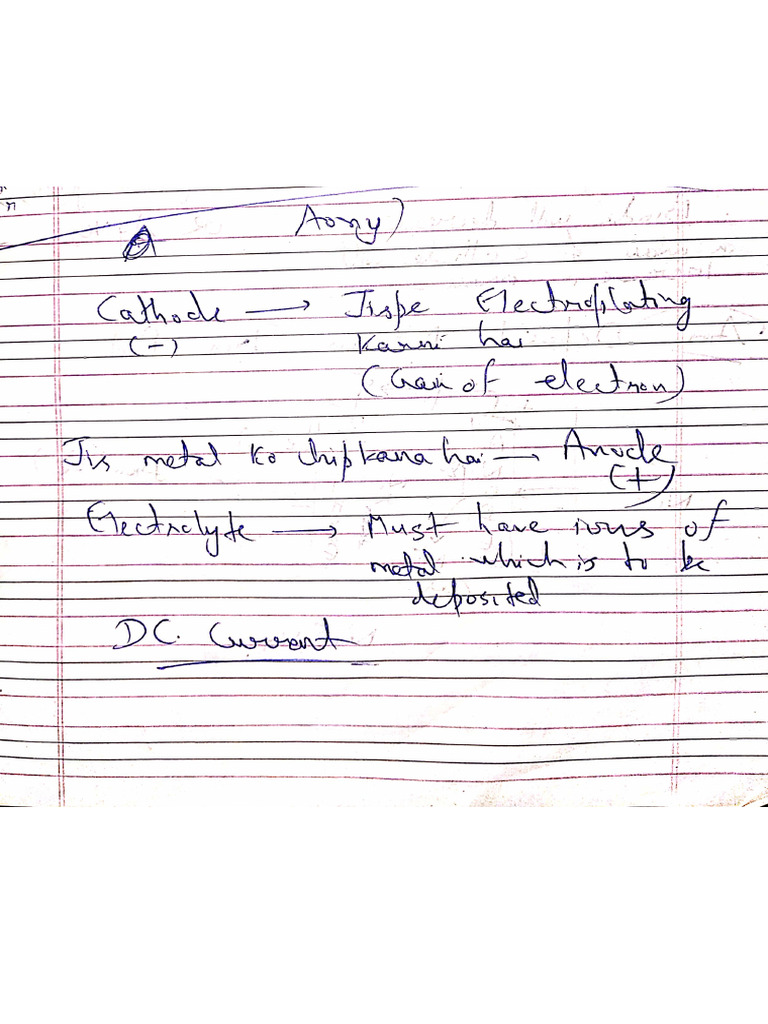 Cathode → Jispe Electroplating
(-) Karni hai
(Gain of electron)
Jis metal ko chipkana hai → Anode
(+)
Electrolyte → Must have ions of
metal which is to be
deposited
DC. Current